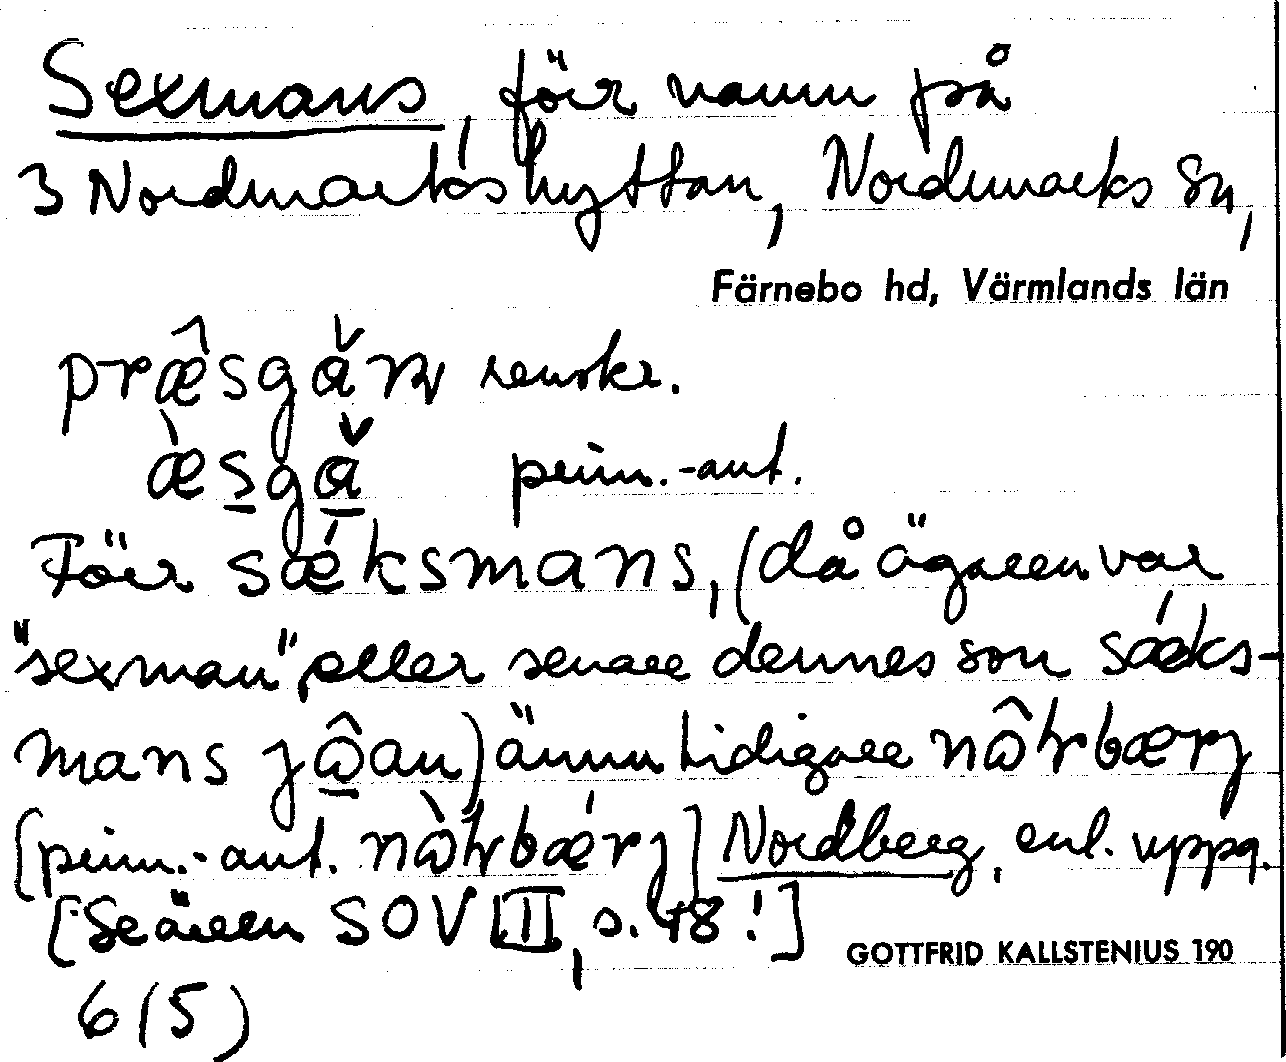 Sexmans, förr namn på
3 Nordmarkshyttan, Nordmarks sn,
Färnebo hd, Värmlands län
præ̂sgǎṇ renskr.
æ̀sgǎ prim.-ant.
Förr sǽksmans, (då ägaren var
"sexman", eller senare dennes son sǽks-
mans jω̂an) ännu tidigare nω̂ṛbærj
[prim.-ant. nὼṛbǽrj] Nordberg, enl. uppg.
[Se även SOV III, s. 48!]
GOTTFRID KALLSTENIUS 190
6 (5)